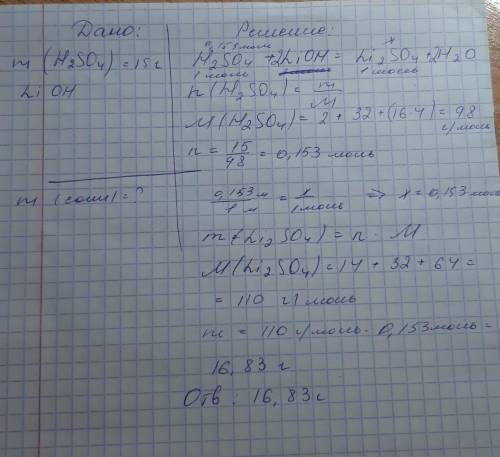 Дано:
m (H₂SO₄) = 15 г
LiOH
m (соли) = ?
Решение:
0,153 моль x
H₂SO₄ + 2LiOH = Li₂SO₄ + 2H₂O
1 моль 1 моль
n (H₂SO₄) = m/M
M (H₂SO₄) = 2 + 32 + (16·4) = 98 г/моль
n = 15/98 = 0,153 моль
0,153 м/1 м = x/1 моль => x = 0,153 моль
m (Li₂SO₄) = n · M
M (Li₂SO₄) = 14 + 32 + 64 =
= 110 г/моль
m = 110 г/моль · 0,153 моль =
16,83 г
Отв: 16,83 г